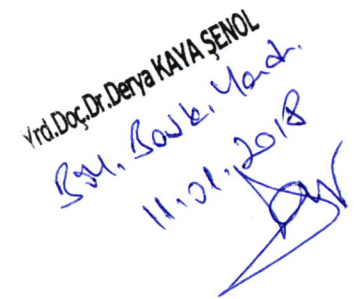 Yrd.Doç.Dr.Derya KAYA ŞENOL
Böl. Başk. Yard.
11.01.2018